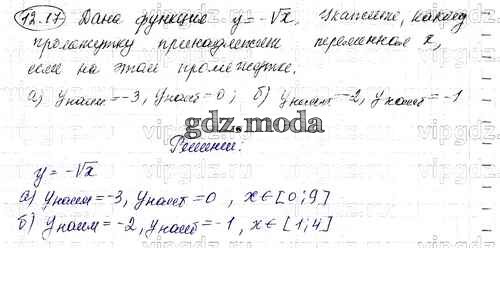 12.17 Дана функция y = -√x. Укажите, какому
промежутку принадлежит переменная x,
если на этом промежутке:
а) yнаим = -3, yнаиб = 0; б) yнаим = -2, yнаиб = -1
gdz.moda
Решение:
y = -√x
а) yнаим = -3, yнаиб = 0, x ∈ [0; 9]
б) yнаим = -2, yнаиб = -1, x ∈ [1; 4]